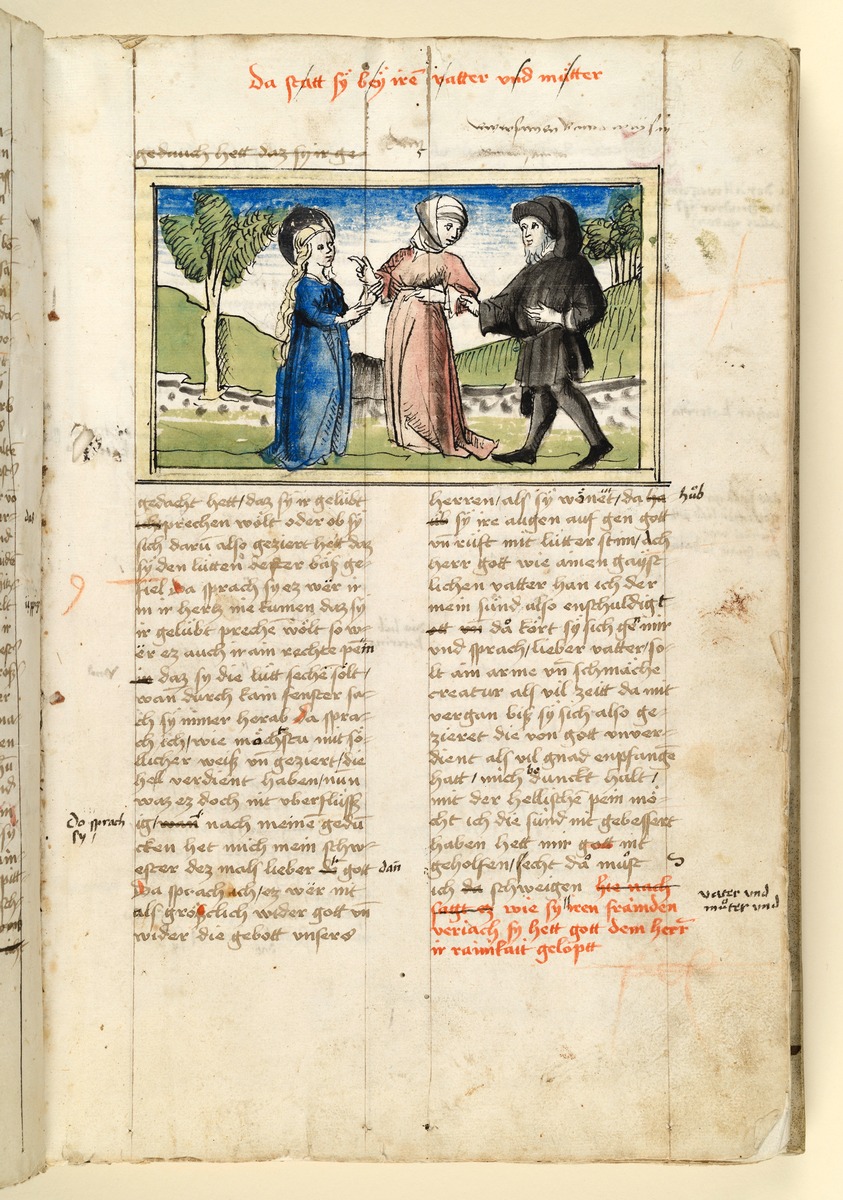 da statt sÿ beÿ irē vatter vnd můtter
gedauch hett daz sy ir ge-
gedacht hett/ daz sy ir gelübt
sprechen wölt oder ob sÿ
sich darū also geziert hett daz
sÿ den lütten dester baß ge-
fiel Da sprach sy ez wër ir
in ir hertz nie kumen daz sÿ
ir gelübt prechē wölt so w-
ër ez auch ir am rechte pein
daz sy die lütt sechē sölt/
wan durch kain fenster sa-
ch sy nimer herab Da spra-
ch ich/ wie möchstu mit sö-
llicher weiß vn̄ geziert/ die
hell verdient haben/ nun
waz ez doch nit vberflüss-
ig/ wan nach meinē gedū
Do sprach
sÿ/
cken het mich mein schw-
ester dez mals lieber gott dan̄
Da sprach ich/ ez wër nit
als gröslich wider gott vn̄
wider die gebott vnsers
herren/ als sÿ wönet/ da hůb
sÿ ire augen auf gen gott
vn̄ rüft mit lutter stim/ Ach
herr gott wie ainen gaÿst-
lichen vatter han ich der
mein sünd also enschuldigt
da kört sÿ sich gē mir
vnd sprach/ lieber vatter/ so-
lt am arme vn̄ schmäche
creatur als vil zeitt da mit
vergan biß sÿ sich also ge-
zieret die von gott vnver-
dient als vil gnad enpfangē
hatt/ mich bedunckt halt/
mit der hellischē pein mö-
cht ich die sünd nit gebessert
haben hett mir gott nit
geholfen/ secht da můst
ich schweigen hie nach
sagt er wie sÿ iren frainden
vater vnd
můter vnd
veriach sÿ hett gott dem herr̄
ir rainikait gelöptt